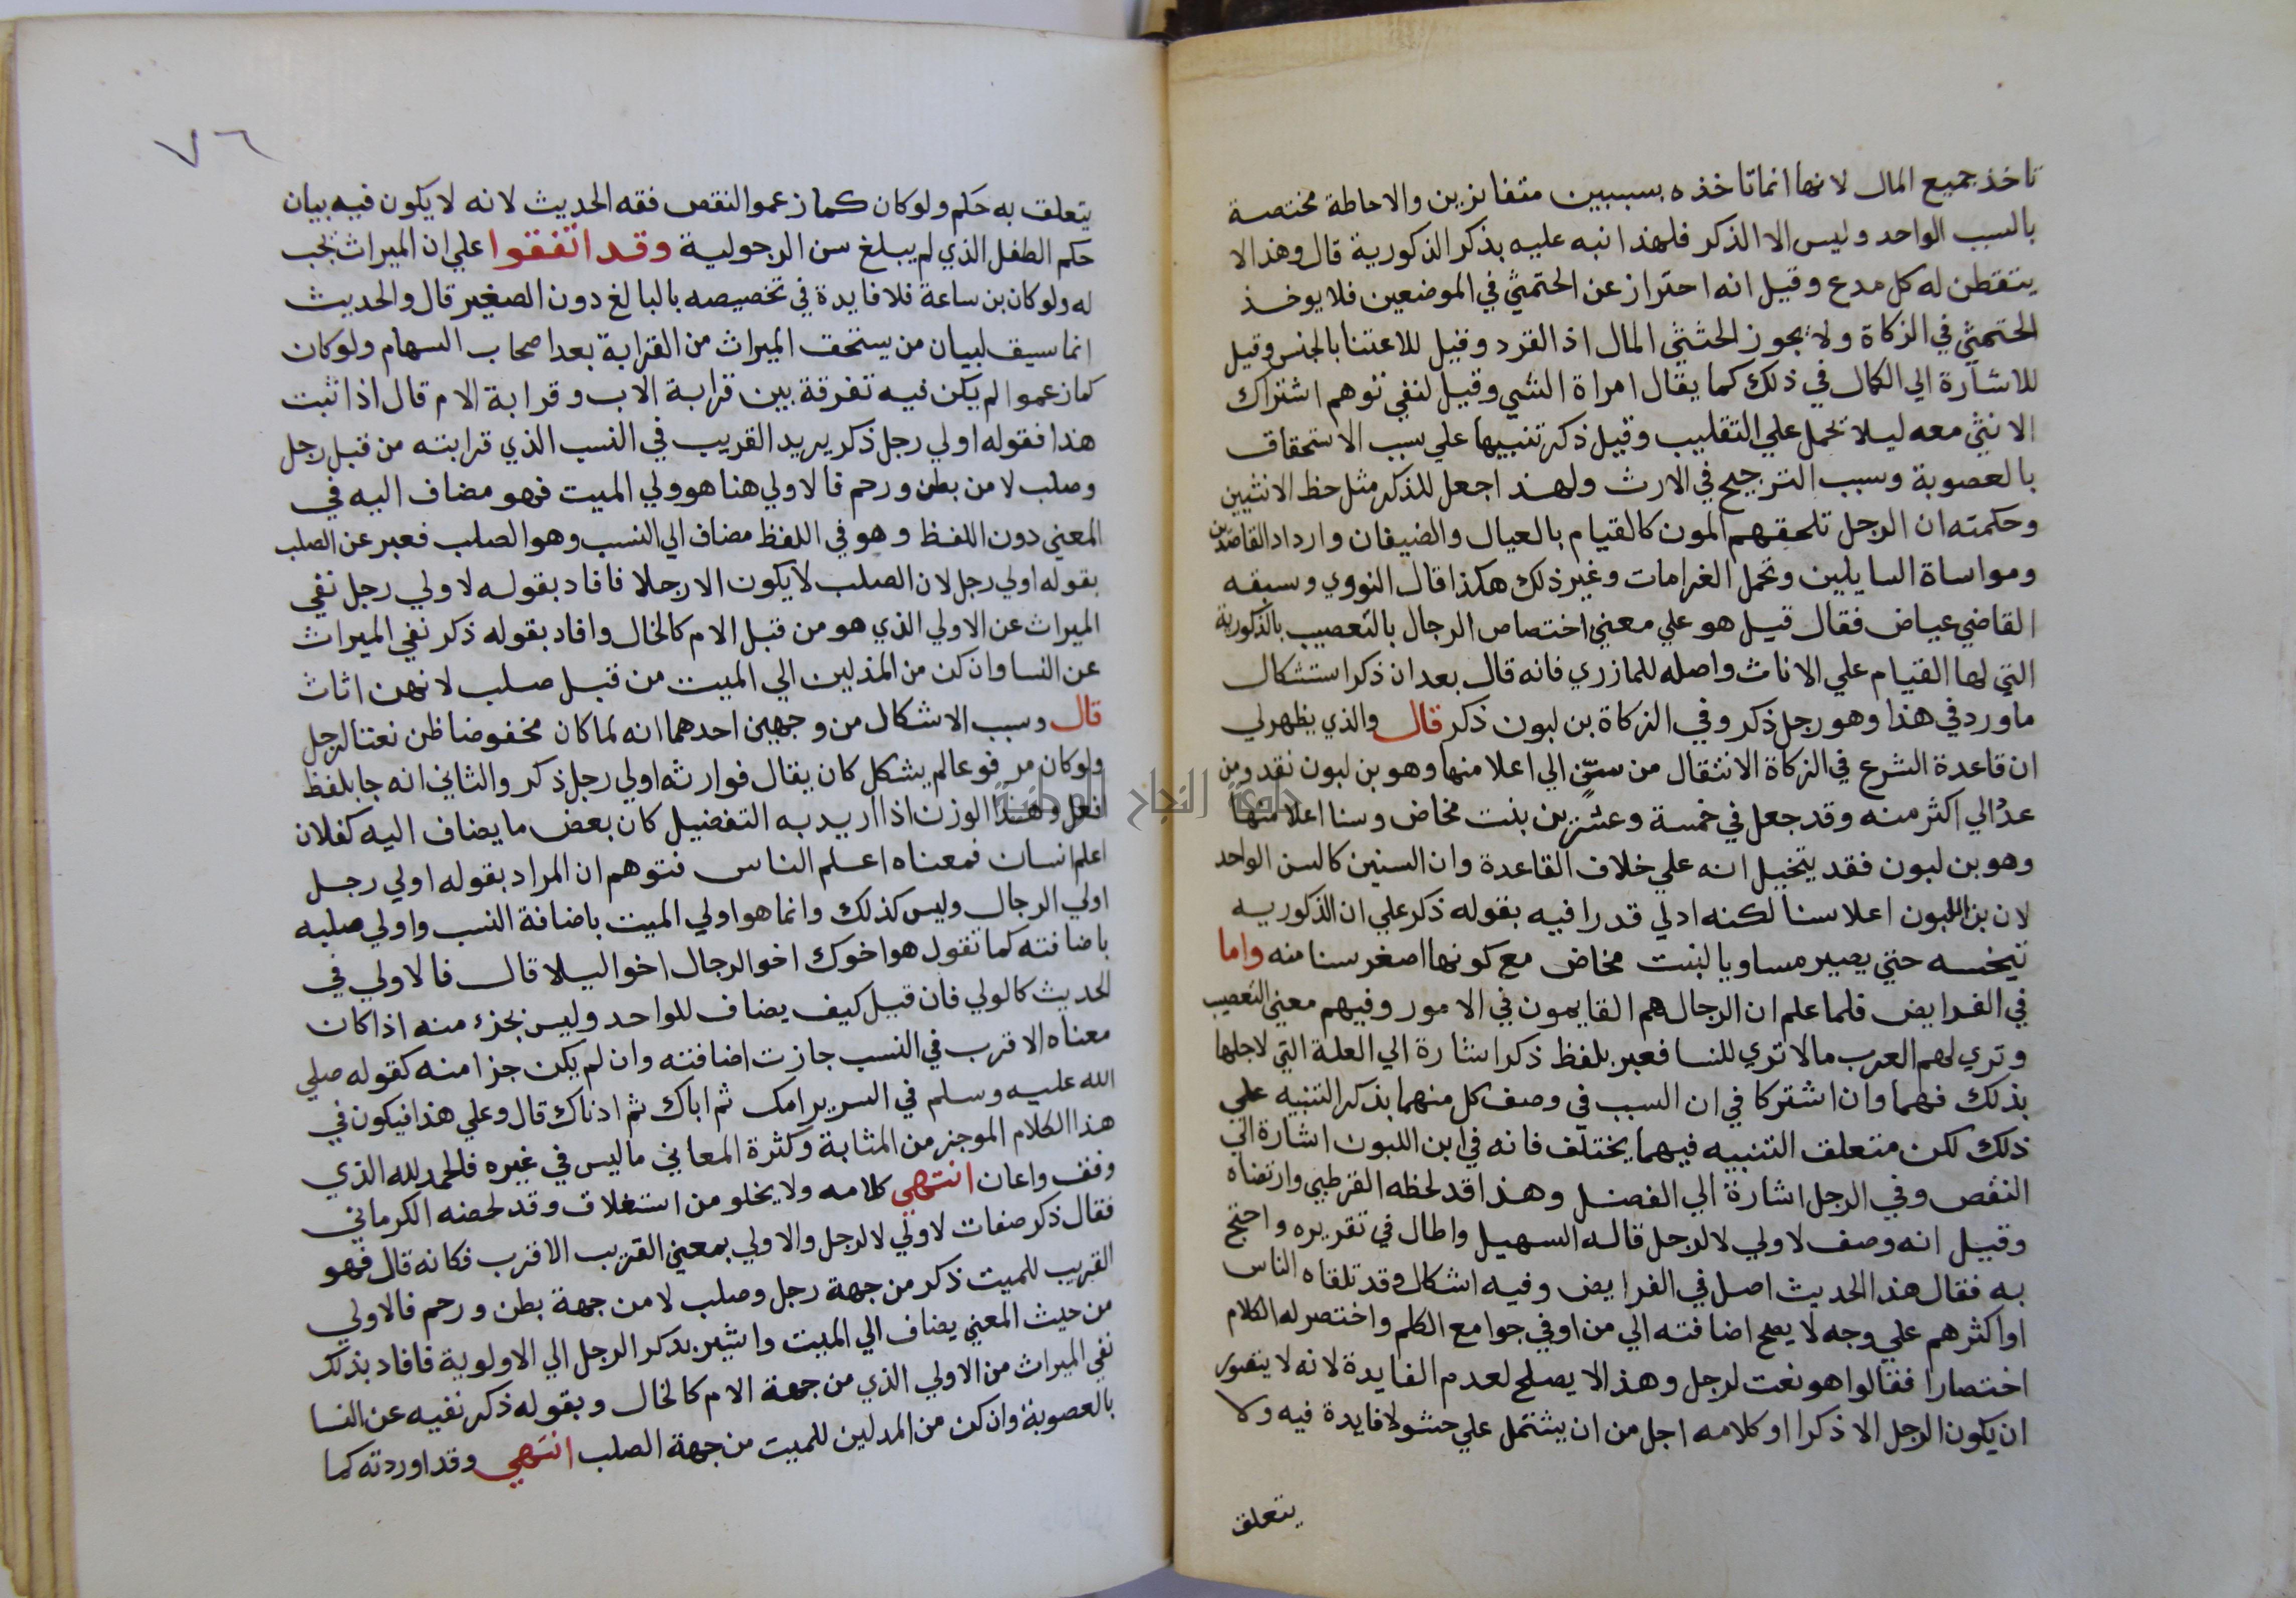 تاخذ جميع المال لانها انما تاخذه بسببين متغايزين والاحاطة مختصة
بالسبب الواحد وليس الا الذكر فلهذا نبه عليه بذكر الذكورية قال وهذا لا
يتفطن له كل مدع وقيل انه احتراز عن الخنثي في الموضعين فلا يوخذ
الخنثي في الزكاة ولا يجوز الخنثي المال اذا انفرد وقيل للاعتنا بالجنس وقيل
للاشارة الي الكمال في ذلك كما يقال امراة انثي وقيل لنفي توهم اشتراك
الانثي معه ليلا تحمل علي التغليب وقيل ذكر تنبيها علي سبب الاستحقاق
بالعصوبة وسبب الترجيح في الارث ولهذا جعل للذكر مثل حظ الانثيين
وحكمته ان الرجل تلحقهم المون كالقيام بالعيال والضيفان وارداد القاصدين
ومواساة السايلين وتحمل الغرامات وغير ذلك هكذا قال النووي وسبقه
القاضي عياض فقال قيل هو علي معني اختصاص الرجال بالتعصيب بالذكورية
التي لها القيام علي الاناث واصله للمازري فانه قال بعد ان ذكر استشكال
ماورد في هذا وهو رجل ذكر وفي الزكاة بن لبون ذكر قال والذي يظهر لي
ان قاعدة الشرع في الزكاة الانتقال من سن الي اعلا منها وهو بن لبون نقد ومن
عدد الي اكثر منه وقد جعل في خمسة وعشرين بنت مخاض وسنا اعلا منها
وهو بن لبون فقد يتخيل انه علي خلاف القاعدة وان السنين كالسن الواحد
لان بن اللبون اعلا سنا لكنه ادني قدرا فنبه بقوله ذكر علي ان الذكوريه
تبخسه حتي يصير مساويا لبنت مخاض مع كونها اصغر سنا منه واما
في الفرايض فلما علم ان الرجال هم القايمون في الامور وفيهم معني التعصيب
وتري لهم العرب مالا تري للنسا فعبر بلفظ ذكر اشارة الي العلة التي لاجلها
بذلك فهما وان اشتركا في ان السبب في وصف كل منهما بذكر التنبيه علي
ذلك لكن متعلق التنبيه فيهما يختلف فانه في ابن اللبون اشارة الي
النقص وفي الرجل اشارة الي الفضل وهذا قد لحظه القرطبي وارتضاه
وقيل انه وصف لاولي لا لرجل قاله السهيل واطال في تقريره واحتج
به فقال هذا الحديث اصل في الفرايض وفيه اشكال وقد تلقاه الناس
او اكثرهم علي وجه لا يصح اضافته الي من اوتي جوامع الكلم واختصر له الكلام
اختصارا فقالوا هو نعت لرجل وهذا لا يصلح لعدم الفايدة لانه لا يتصور
ان يكون الرجل الا ذكرا او كلامه اجل من ان يشتمل علي حشو لا فايدة فيه ولا
يتعلق
٧٦
يتعلق به حكم ولو كان كما زعموا لنقص فقه الحديث لانه لا يكون فيه بيان
حكم الطفل الذي لم يبلغ سن الرجولية وقد اتفقوا علي ان الميراث يجب
له ولو كان بن ساعة فلا فايدة في تخصيصه بالبالغ دون الصغير قال والحديث
انما سيق لبيان من يستحق الميراث من القرابة بعد اصحاب السهام ولو كان
كما زعموا لم يكن فيه تفرقة بين قرابة الاب وقرابة الام قال اذا ثبت
هذا فقوله اولي رجل ذكر يريد القريب في النسب الذي قرابته من قبل رجل
وصلب لا من بطن ورحم فالاولي هنا هو ولي الميت فهو مضاف اليه في
المعني دون اللفظ وهو في اللفظ مضاف الي النسب وهو الصلب فعبر عن الصلب
بقوله اولي رجل لان الصلب لا يكون الا رجلا فافاد بقوله لاولي رجل نفي
الميراث عن الاولي الذي هو من قبل الام كالخال وافاد بقوله ذكر نفي الميراث
عن النسا وان كن من المدلين الي الميت من قبل صلب لانهن اناث
قال وسبب الاشكال من وجهين احدهما انه لما كان مخفوضا ظن نعتا لرجل
ولو كان مرفوعا لم يشكل كان يقال فوارثه اولي رجل ذكر والثاني انه جا بلفظ
افعل وهذا الوزن اذا اريد به التفضيل كان بعض ما يضاف اليه كفلان
اعلم انسان فمعناه اعلم الناس فتوهم ان المراد بقوله اولي رجل
اولي الرجال وليس كذلك وانما هو اولي الميت باضافة النسب واولي صلبه
باضافته كما تقول هو اخوك اخو الرجال اخوا ليلا قال فالاولي في
الحديث كالولي فان قيل كيف يضاف للواحد وليس بجزء منه اذا كان
معناه الاقرب في النسب جازت اضافته وان لم يكن جزا منه كقوله صلي
الله عليه وسلم في السرير امك ثم اباك ثم ادناك قال وعلي هذا فيكون في
هذا الكلام الموجز من المثابة وكثرة المعاني ما ليس في غيره فالحمد لله الذي
وفق واعان انتهي كلامه ولا يخلو من استغلاق وقد لخصه الكرماني
فقال ذكر صفات لاولي لا لرجل والاولي بمعني القريب الاقرب فكانه قال فهو
القريب للميت ذكر من جهة رجل وصلب لا من جهة بطن ورحم فالاولي
من حيث المعني يضاف الي الميت واشير بذكر الرجل الي الاولوية فافاد بذلك
نفي الميراث من الاولي الذي من جهة الام كالخال وبقوله ذكر نفيه عن النسا
بالعصوبة وان كن من المدلين للميت من جهة الصلب انتهي وقد اوردته كما
جامعة النجاح الوطنية